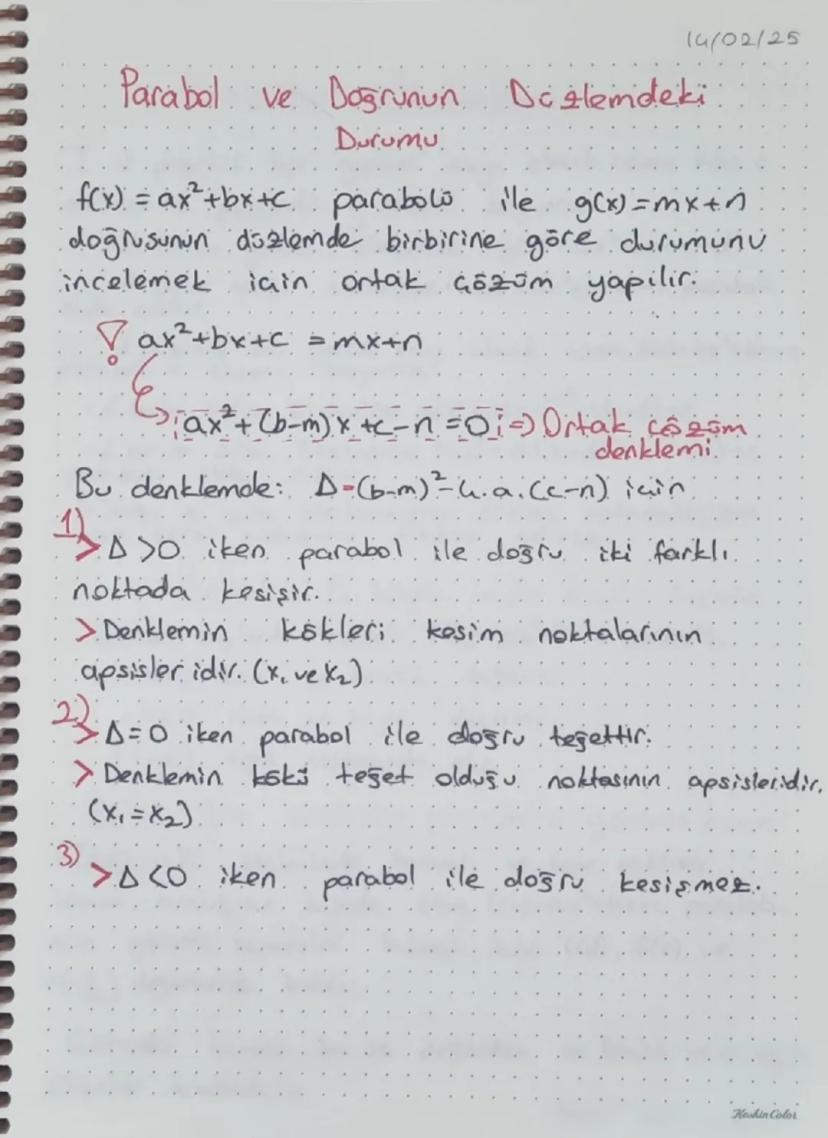 14/02/25
Parabol ve Doğrunun Düzlemdeki
Durumu
f(x) = ax²+bx+c parabolü ile g(x)=mx+n
doğrusunun düzlemde birbirine göre durumunu
incelemek için ortak çözüm yapılır.
! ax²+bx+c = mx+n
ax²+(b-m)x+c-n=0 => Ortak çözüm
denklemi
Bu denklemde: Δ=(b-m)²-4.a.(c-n) için
1)
> Δ>0 iken parabol ile doğru iki farklı
noktada kesişir.
> Denklemin kökleri kesim noktalarının
apsisleridir. (x₁ ve x₂)
2)
> Δ=0 iken parabol ile doğru teğettir.
> Denklemin kökü teğet olduğu noktasının apsisleridir.
(x₁=x₂)
3)
> Δ<0 iken parabol ile doğru kesişmez.
KeskinColor